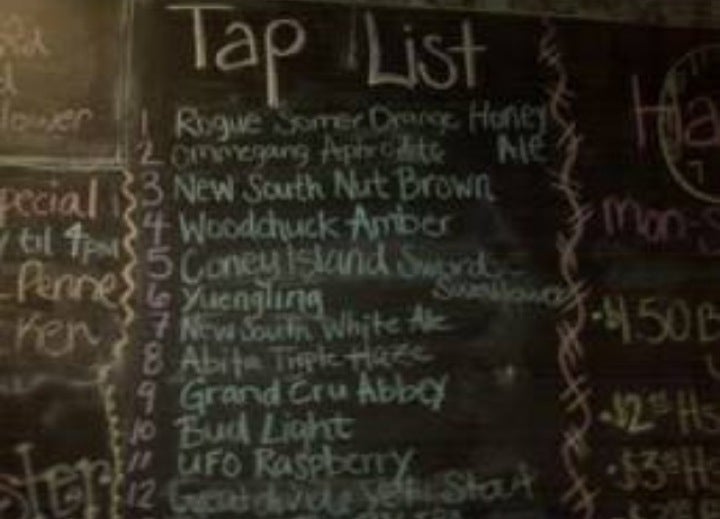 Tap List
1 Rogue Somer Orange Honey Ale
2 Ommegang Aphrodite
3 New South Nut Brown
4 Woodchuck Amber
5 Coney Island Sword-
Swallower
6 Yuengling
7 New South White Ale
8 Abita Triple Haze
9 Grand Cru Abbey
10 Bud Light
11 UFO Raspberry
12 Great divide Yeti Stout
lower
pecial
til 4pm
Penne
Ken
Ha
Mon-S
$4.50 B
$2
$3